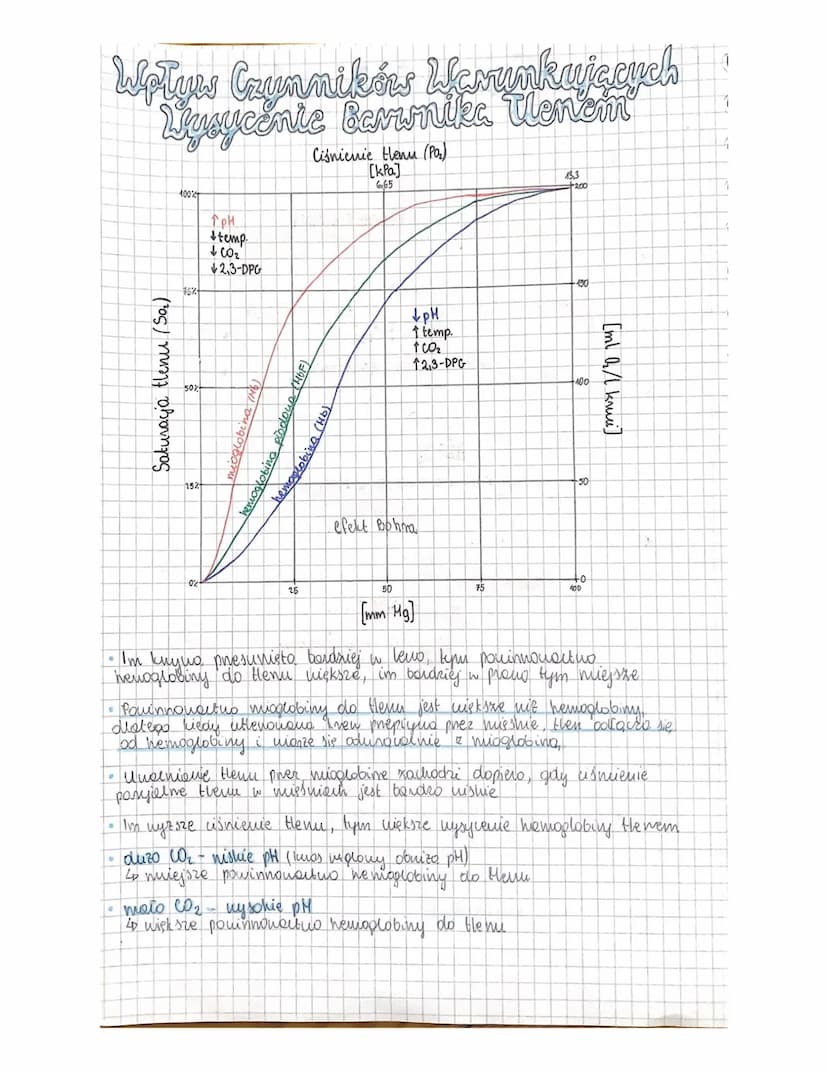 Wpływ Czynników Warunkujących
Wysycenie Barwnika Tlenem
Ciśnienie tlenu (Po₂)
[kPa]
6,65
13,3
100%
200
↑pH
↓temp.
↓CO₂
↓2,3-DPG
75%
150
↓pH
↑temp.
↑CO₂
↑2,3-DPG
Saturacja tlenu (So₂)
[ml O₂/l krwi]
mioglobina (Mb)
hemoglobina płodowa (HbF)
hemoglobina (Hb)
50%
100
25%
50
efekt Bohra
0%
0
25
50
75
100
[mm Hg]
• Im krzywa przesunięta bardziej w lewo, tym powinowactwo
hemoglobiny do tlenu większe, im bardziej w prawo tym mniejsze
• Powinnowactwo mioglobiny do tlenu jest większe niż hemoglobiny,
dlatego kiedy utlenowana krew przepływa przez mięśnie, tlen odłącza się
od hemoglobiny i wiąże się odwracalnie z mioglobiną,
• Uwalnianie tlenu przez mioglobinę zachodzi dopiero, gdy ciśnienie
parcjalne tlenu w mięśniach jest bardzo niskie
• Im wyższe ciśnienie tlenu, tym większe wysycenie hemoglobiny tlenem
• dużo CO₂ - niskie pH (kwas węglowy obniża pH)
↳ mniejsze powinnowactwo hemoglobiny do tlenu
• mało CO₂ - wysokie pH
↳ większe powinnowactwo hemoglobiny do tlenu